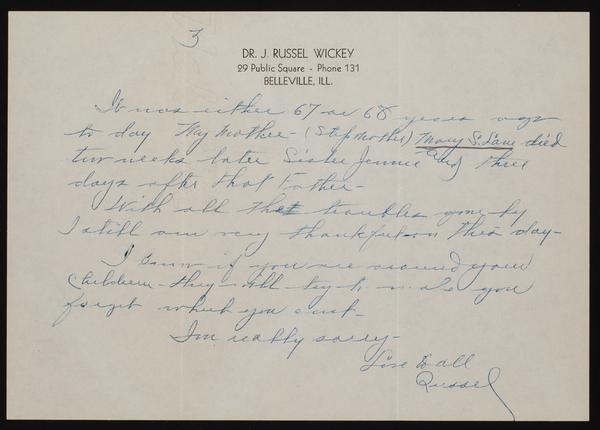 3
DR. J. RUSSEL WICKEY
29 Public Square - Phone 131
BELLEVILLE, ILL.
It was either 67 or 68 years ago
to day My Mother - (Step Mother) Mary S. Lane died
two weeks later Sister Jennie and three
days after that Father -
With all the troubles gone by
I still am very thankful on this day -
I know if you are around your
Children - they will try to make you
forget which you cant -
I'm really sorry -
Love to all
Russel